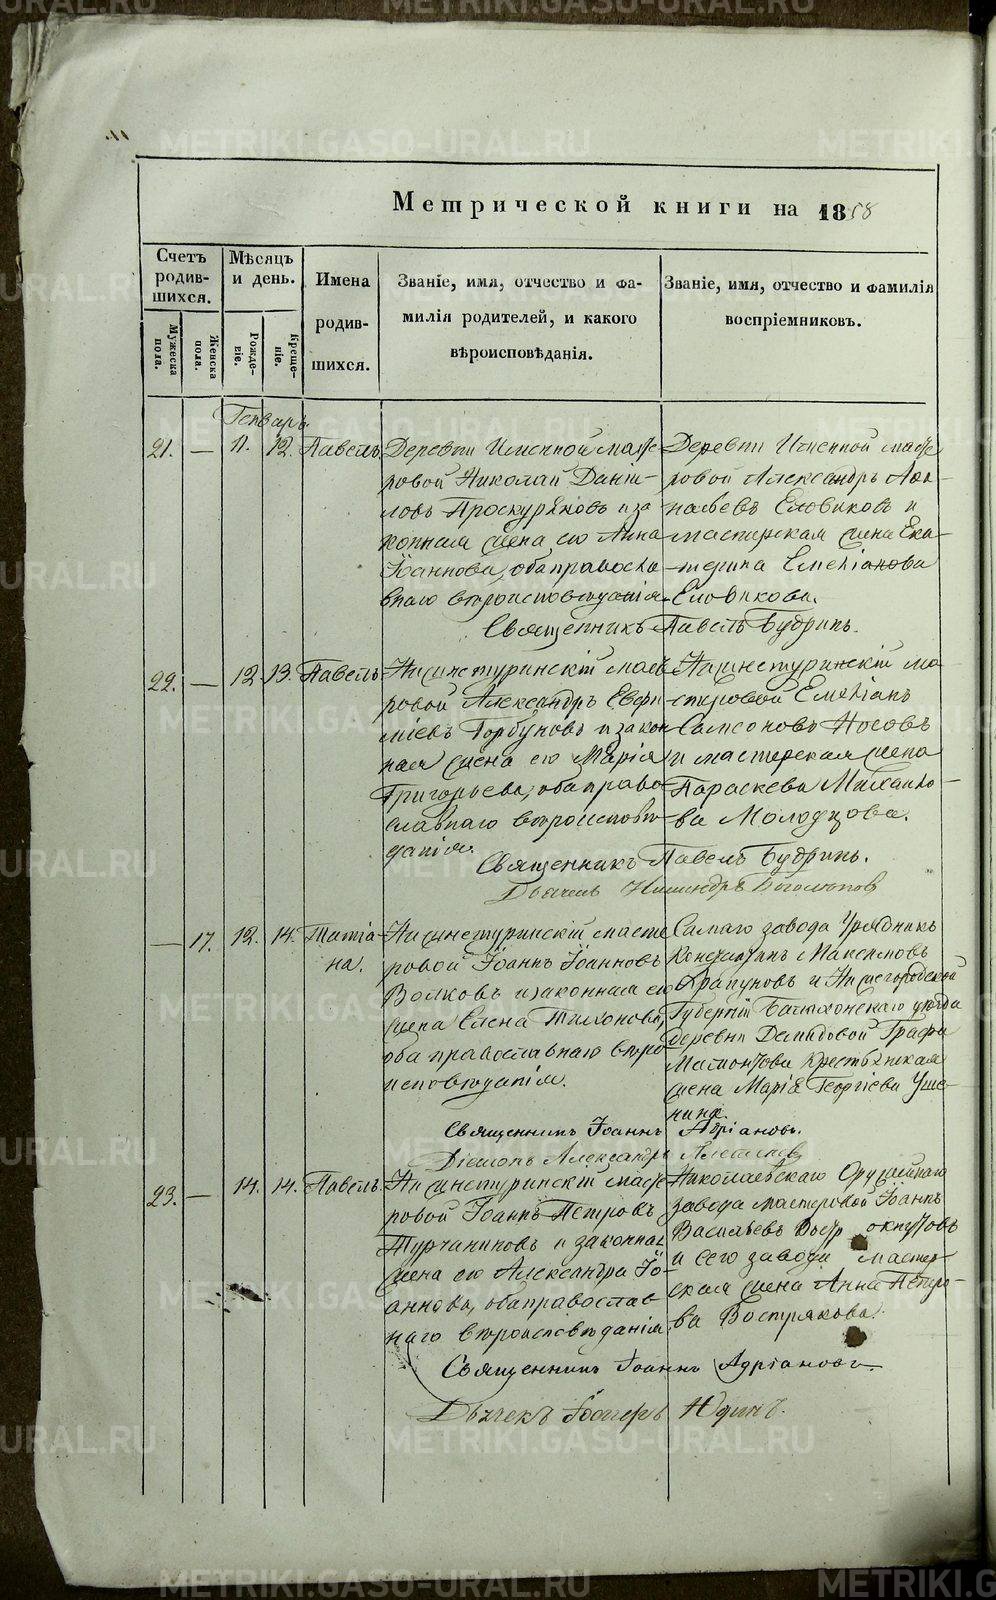 Метрической книги на 1858
Счетъ родив-шихся.
Мѣсяцъ и день.
Имена родив-шихся.
Званіе, имя, отчество и фа-
милія родителей, и какого
вѣроисповѣданія.
Званіе, имя, отчество и фамилія
воспріемниковъ.
Мужеска пола.
Женска пола.
Рожде-ніе.
Креще-ніе.
Генварь
21. — 11. 12. Павелъ
Деревни Именной масте
ровой Николай Даніи-
ловъ Проскуряковъ и за
конная жена его Анна
Іоаннова, оба правосла
внаго вѣроисповѣданія.
Деревни Именной масте
ровой Александръ
Еловиковъ и
мастерская жена Ека-
терина Емеліанова
Еловикова.
Священникъ Павелъ Будринъ.
22. — 12. 13. Павелъ
Нижнетуринскій масте
ровой Александръ Евфи
міевъ Горбуновъ и закон
ная жена его Марія
Григорьева, оба право
славнаго вѣроисповѣ
данія.
Нижнетуринскій ма-
стеровой Емеліанъ
Самсоновъ Носовъ
и мастерская жена
Параскева Михаило-
ва Молодцова.
Священникъ Павелъ Будринъ.
Боголюповъ
— 17. 12. 14. Татіа-
на.
Нижнетуринскій масте
ровой Іоаннъ Іоанновъ
Волковъ и законная его
жена Елена Тихонова,
оба православнаго вѣро
исповѣданія.
Самаго завода Урядникъ
Константинъ Максимовъ
Храпуновъ и Нижегородской
Губерніи уѣзда
деревни Демидовой Графа
крестьянская
жена Марія Георгіева Уша-
нина.
Священникъ Іоаннъ Адріановъ.
Діаконъ Александръ
23. — 14. 14. Павелъ.
Нижнетуринскій масте
ровой Іоаннъ Петровъ
Турчаниновъ и законная
жена его Александра Іо-
аннова, оба православ
наго вѣроисповѣданія.
Николаевскаго Оружейнаго
завода мастеровой Іоаннъ
Васильевъ
и сего завода мастер-
ская жена Анна Петро-
ва Вострякова.
Священникъ Іоаннъ Адріановъ.
Дьячекъ Юдинъ.
METRIKI.GASO-URAL.RU